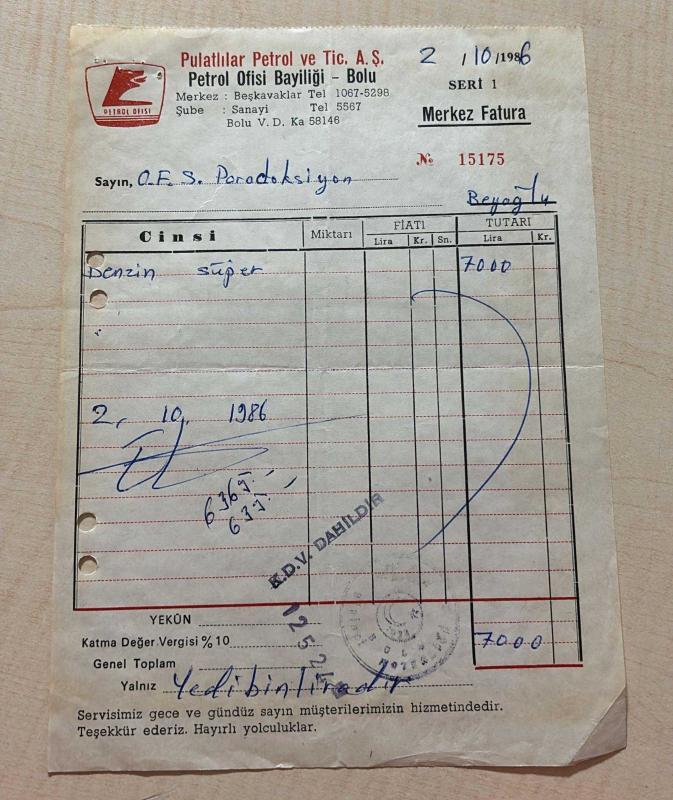 Pulatlılar Petrol ve Tic. A. Ş.
Petrol Ofisi Bayiliği - Bolu
Merkez : Beşkavaklar Tel 1067-5298
Şube : Sanayi Tel 5567
Bolu V. D. Ka 58146
PETROL OFİSİ
2 / 10 / 1986
SERİ 1
Merkez Fatura
№ 15175
Sayın, O.F.S. Paradoksiyon
Beyoğlu
Cinsi Miktarı FİATI TUTARI
Lira Kr. Sn. Lira Kr.
Benzin süper 7000
2, 10, 1986
6365.-
635.-
K.D.V. DAHİLDİR
YEKÛN
Katma Değer Vergisi %10 7000
Genel Toplam
Yalnız Yedibinliradır
Servisimiz gece ve gündüz sayın müşterilerimizin hizmetindedir.
Teşekkür ederiz. Hayırlı yolculuklar.